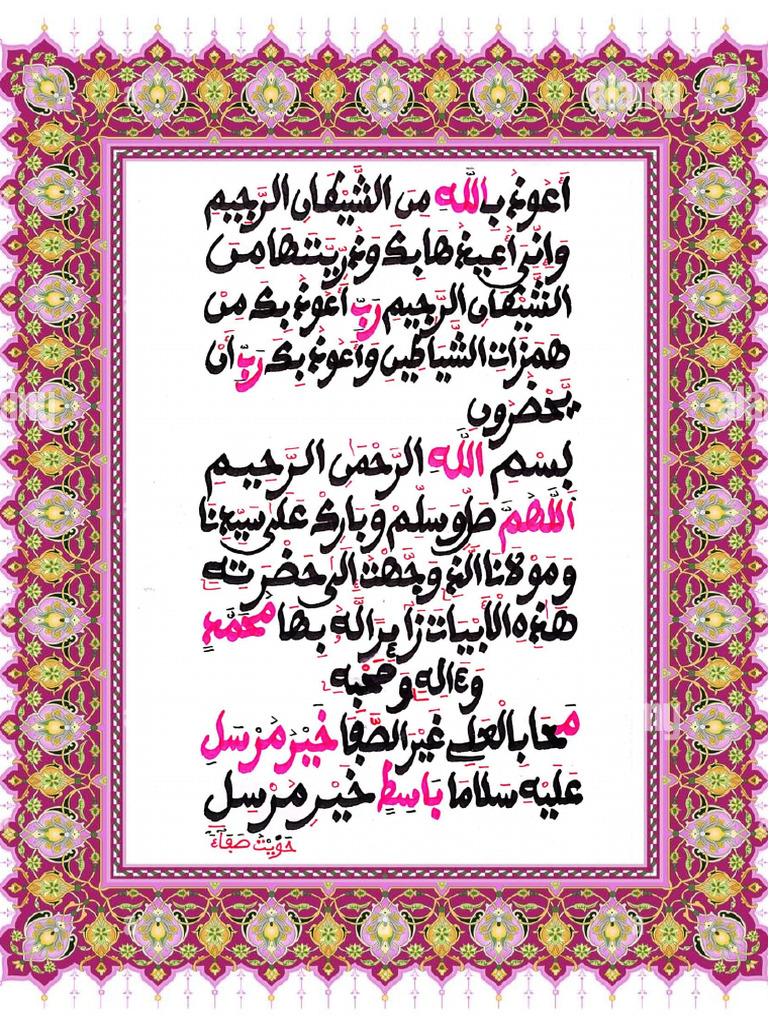 أَعُوذُ بِاللَّهِ مِنَ الشَّيْطَانِ الرَّجِيمِ
وَإِنِّي أُعِيذُهَا بِكَ وَذُرِّيَّتَهَا مِنَ
الشَّيْطَانِ الرَّجِيمِ رَبِّ أَعُوذُ بِكَ مِنْ
هَمَزَاتِ الشَّيَاطِينِ وَأَعُوذُ بِكَ رَبِّ أَنْ
يَّحْضُرُونِ
بِسْمِ اللَّهِ الرَّحْمَنِ الرَّحِيمِ
اَللَّهُمَّ صَلِّ وَسَلِّمْ وَبَارِكْ عَلَى سَيِّدِنَا
وَمَوْلَانَا الَّذِي وَجَّهْتُ إِلَى حَضْرَتِهِ
هَذِهِ الْأَبْيَاتَ زَائِرًا لَهُ بِهَا مُحَمَّدٍ
وَءَالِهِ وَصَحْبِهِ
مَحَا بِالْعُلَى غَيْرَ الصَّفَا خَيْرُ مُرْسَلِ
عَلَيْهِ سَلَامَا بَاسِطٍ خَيْرِ مُرْسِلِ